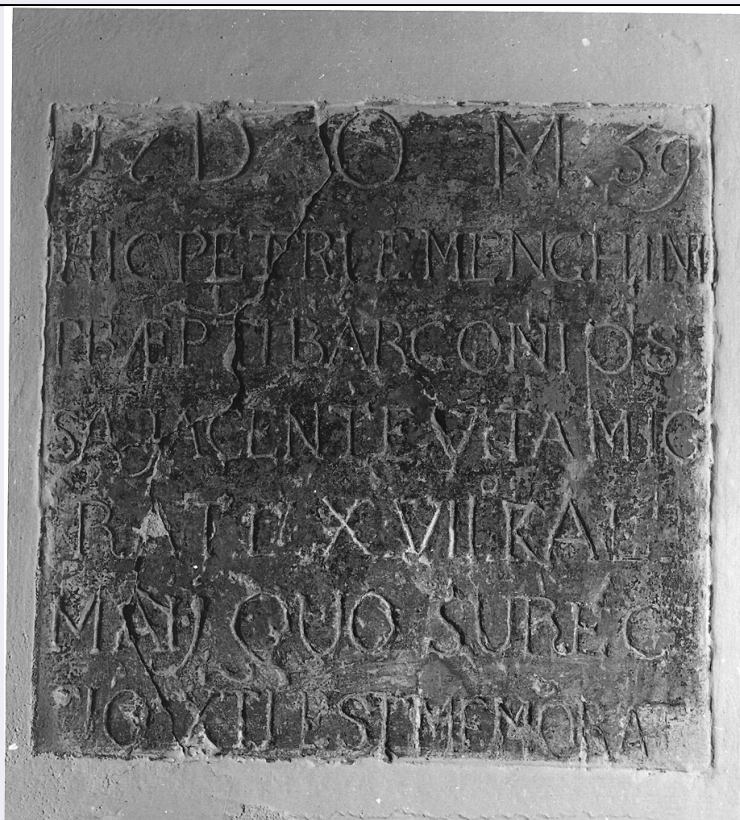 17 D O M 39
HIC PETRI E MENCHINI
PBÆPTI BARGONI OS
SA JACENT E VITA MIG
RATI XVII KAL
MAIJ QUO SUREC
TIO XTI EST MEMORA